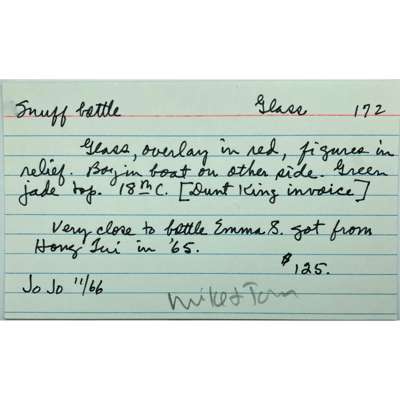 Snuff bottle Glass 172
Glass, overlay in red, figures in
relief. Boy in boat on other side. Green
jade top. 18th C. [Dunt King invoice]
Very close to bottle Emma B. got from
Hong Tui in '65.
$125.
Jo Jo 11/66
Mike & Tom